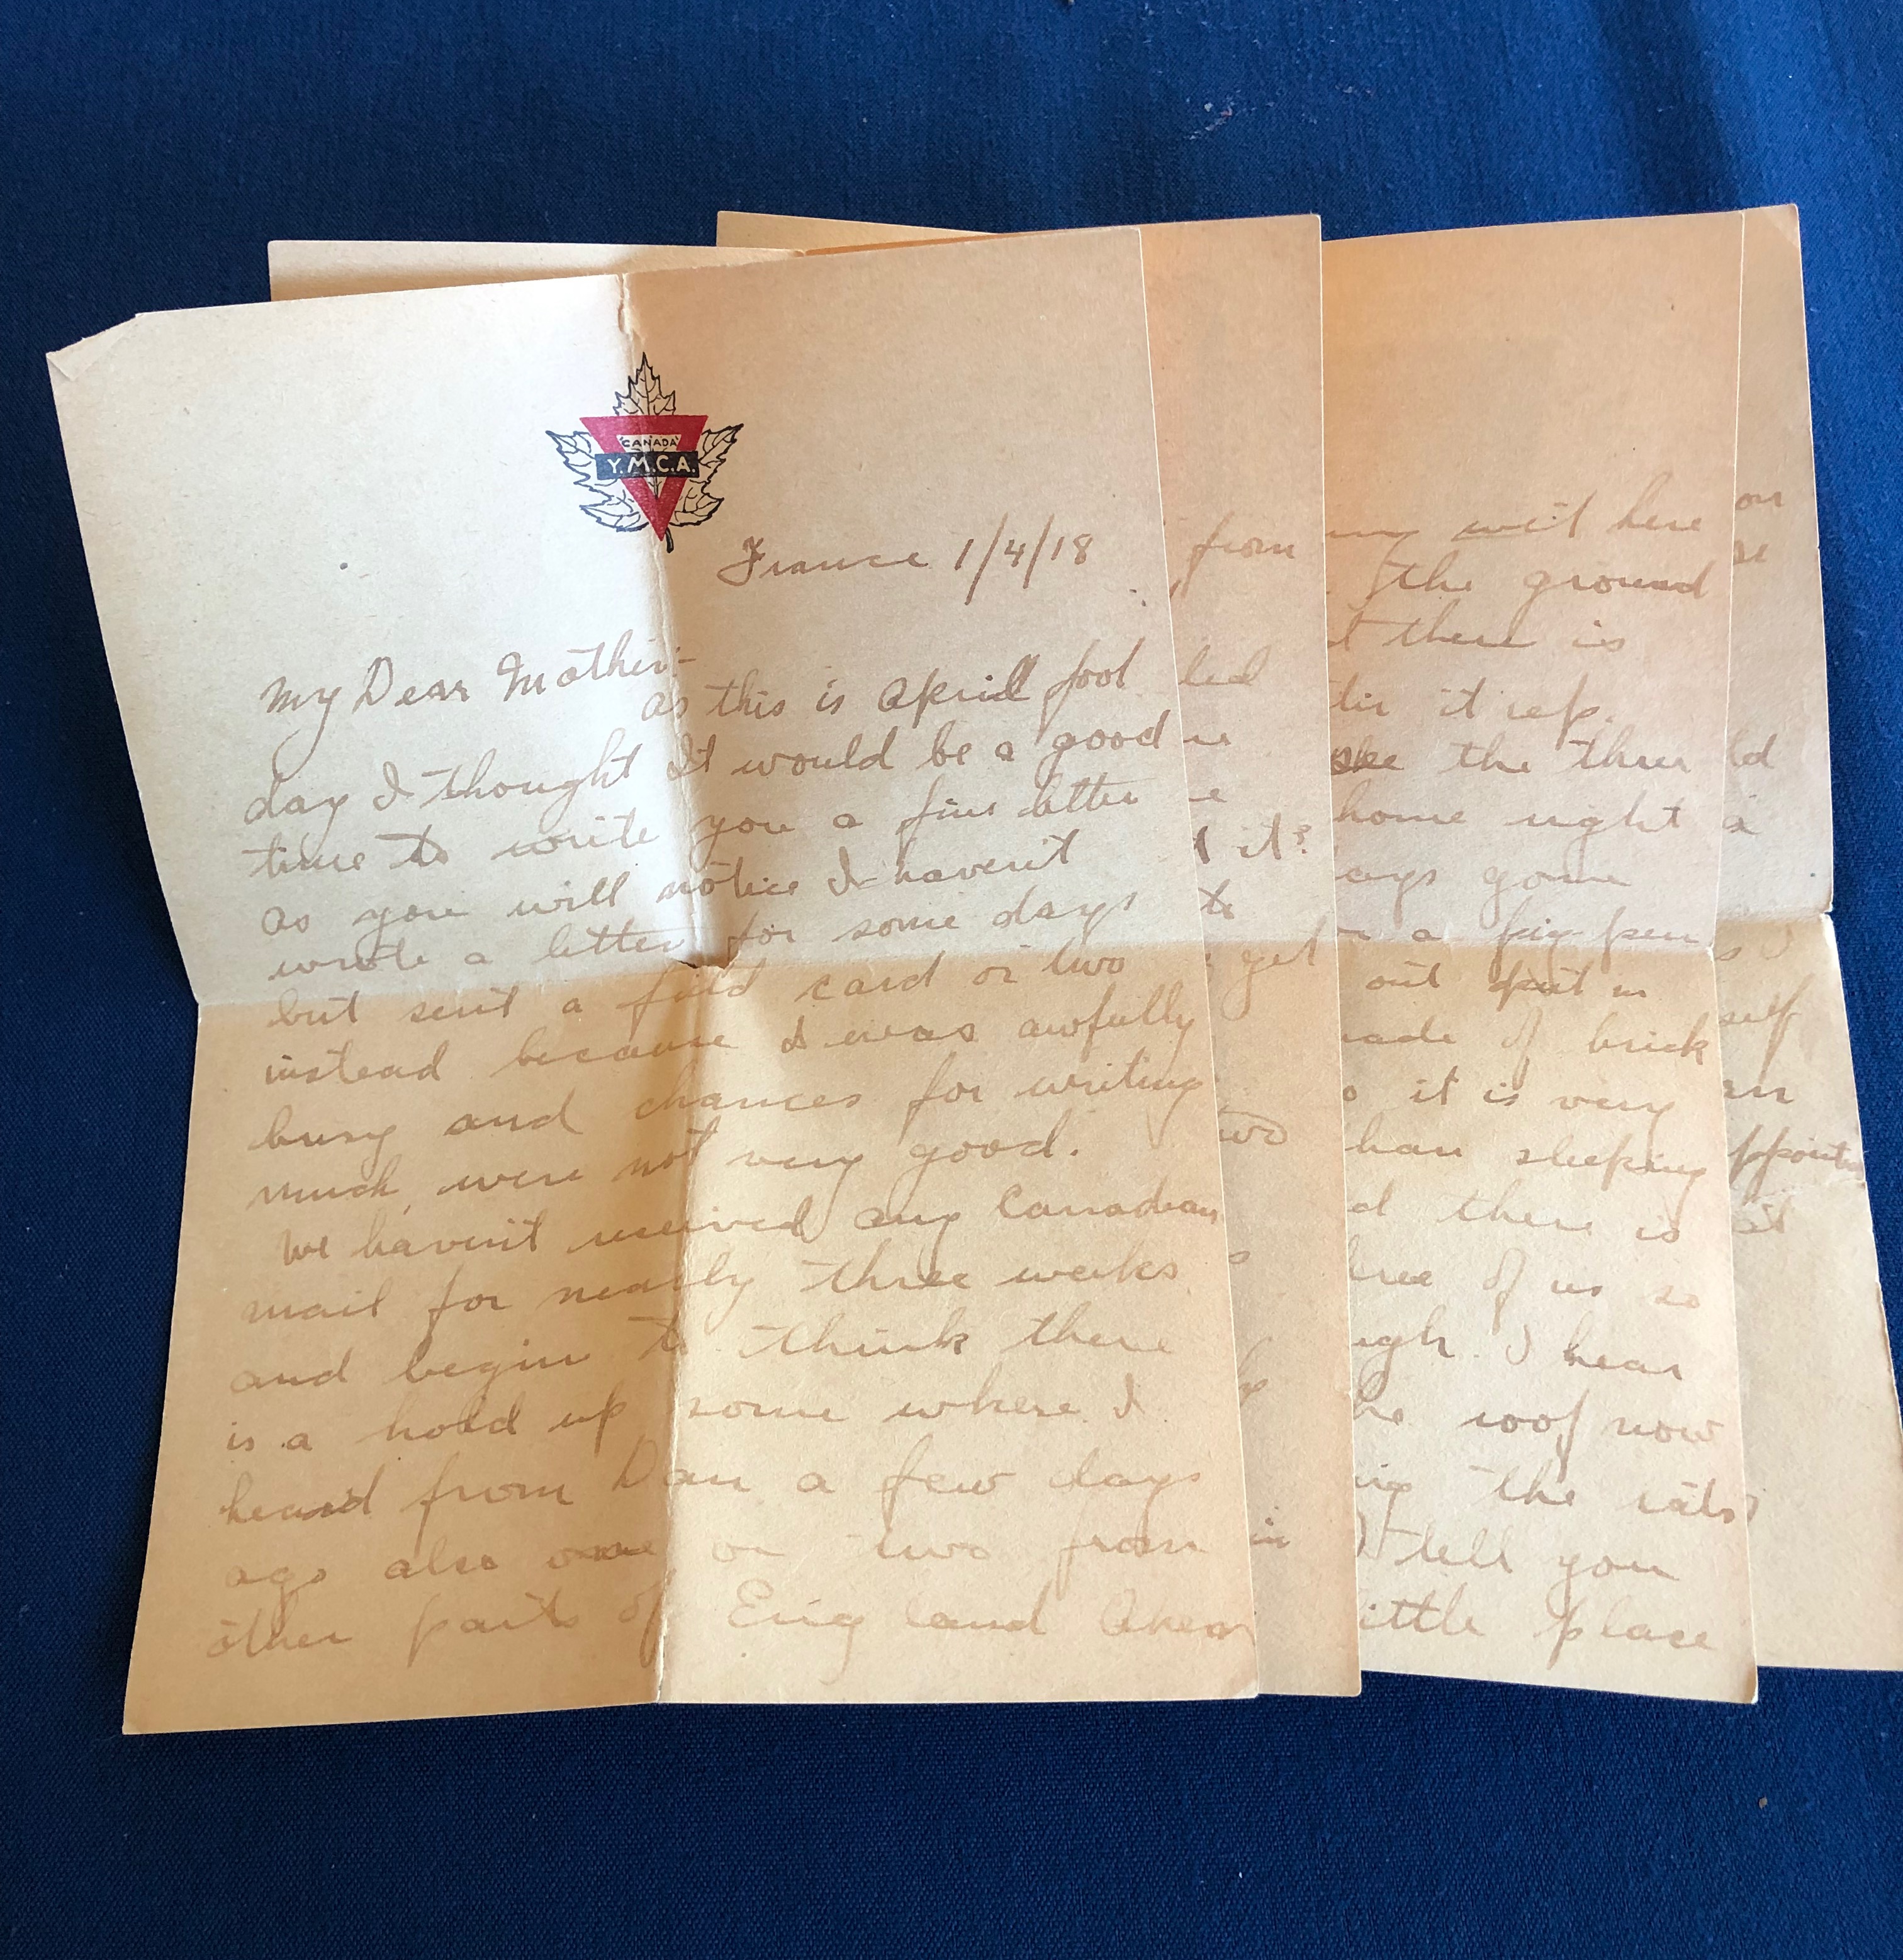 CANADA
Y.M.C.A.
France 1/4/18
My Dear Mother:-
as this is April fool
day I thought It would be a good
time to write you a fine letter
as you will notice I haven't
wrote a letter for some days
but sent a field card or two
instead because I was awfully
busy and chances for writing
much, were not very good.
We haven't received any Canadian
mail for nearly three weeks
and begin to think there
is a hold up some where. I
heard from Dan a few days
ago also one or two from
other parts of England
from
led
it?
to
get
two
in
wet here
the ground
there is
it up.
the three
home night
gone
a pig-pen
out but in
of brick
it is very
sleeping
there is
of us so
I hear
roof now
the rats
tell you
place
on
a
self
at